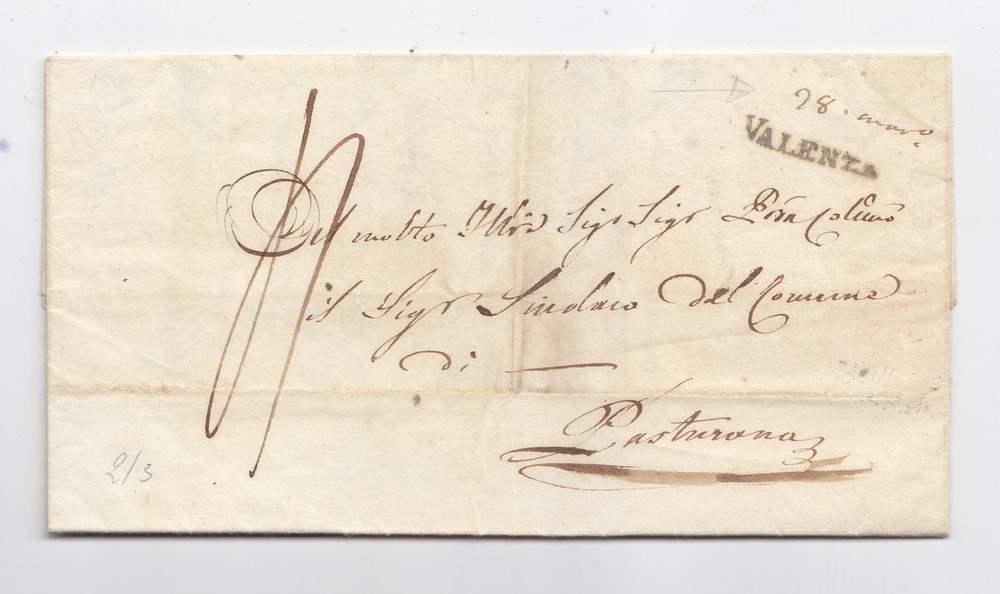 28. marzo
VALENZA
Al molto Illre Sigr Sigr Pron Colmo
il Sigr Sindaco del Comune
di —
Pasturana
2/3